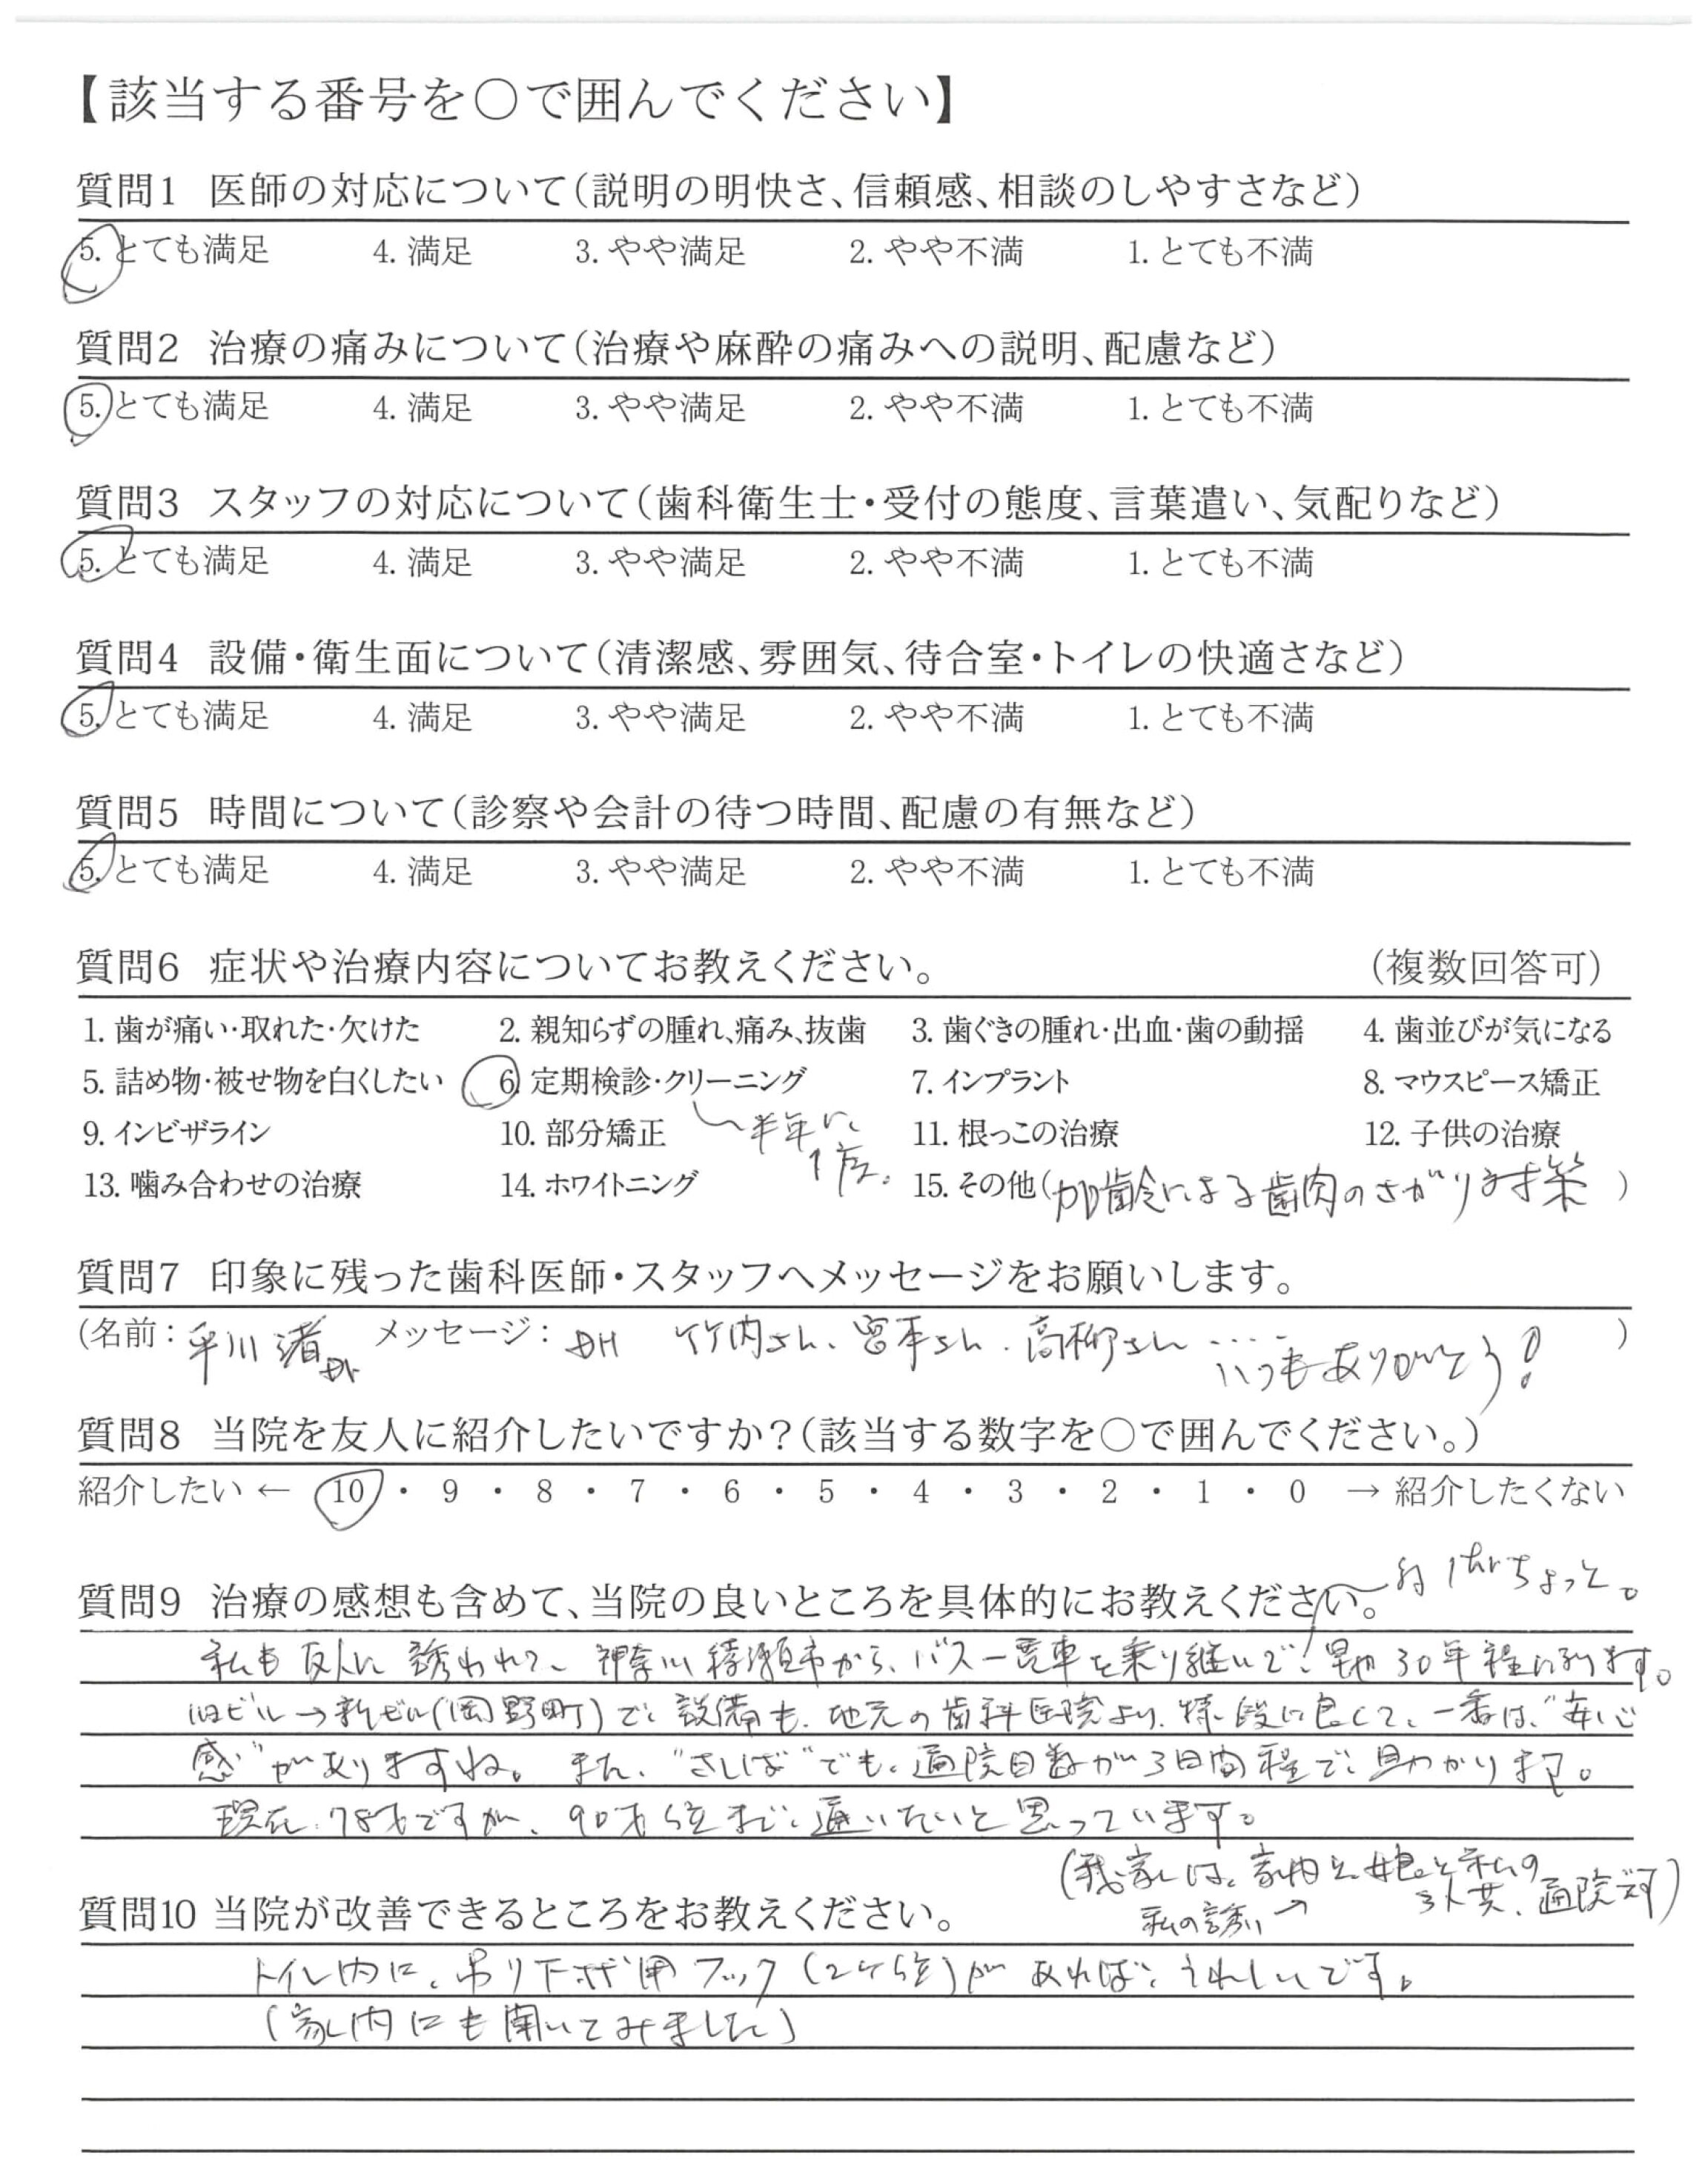 【該当する番号を○で囲んでください】
質問1 医師の対応について(説明の明快さ、信頼感、相談のしやすさなど)
5. とても満足 4. 満足 3. やや満足 2. やや不満 1. とても不満
質問2 治療の痛みについて(治療や麻酔の痛みへの説明、配慮など)
5. とても満足 4. 満足 3. やや満足 2. やや不満 1. とても不満
質問3 スタッフの対応について(歯科衛生士・受付の態度、言葉遣い、気配りなど)
5. とても満足 4. 満足 3. やや満足 2. やや不満 1. とても不満
質問4 設備・衛生面について(清潔感、雰囲気、待合室・トイレの快適さなど)
5. とても満足 4. 満足 3. やや満足 2. やや不満 1. とても不満
質問5 時間について(診察や会計の待つ時間、配慮の有無など)
5. とても満足 4. 満足 3. やや満足 2. やや不満 1. とても不満
質問6 症状や治療内容についてお教えください。 (複数回答可)
1. 歯が痛い・取れた・欠けた 2. 親知らずの腫れ、痛み、抜歯 3. 歯ぐきの腫れ・出血・歯の動揺 4. 歯並びが気になる
5. 詰め物・被せ物を白くしたい 6. 定期検診・クリーニング 7. インプラント 8. マウスピース矯正
9. インビザライン 10. 部分矯正 11. 根っこの治療 12. 子供の治療
半年に
1度。
13. 噛み合わせの治療 14. ホワイトニング 15. その他(加齢による歯肉のさがり対策)
質問7 印象に残った歯科医師・スタッフへメッセージをお願いします。
(名前: 平川渚Dr メッセージ: DH 竹内さん、宮本さん、高柳さん ‥‥ いつもありがとう! )
質問8 当院を友人に紹介したいですか?(該当する数字を○で囲んでください。)
紹介したい ← 10 ・ 9 ・ 8 ・ 7 ・ 6 ・ 5 ・ 4 ・ 3 ・ 2 ・ 1 ・ 0 → 紹介したくない
質問9 治療の感想も含めて、当院の良いところを具体的にお教えください。
約1hrちょっと。
私も友人に誘われて、神奈川綾瀬市から、バス→電車を乗り継いで!早や30年程になります。
旧ビル→新ビル(岡野町)で、設備も、地元の歯科医院より、特段に良くて、一番は、"安心
感"がありますね。また、"さしば"でも、通院日数が3日間程で、助かります。
現在、78才ですが、90才位まで、通いたいと思っています。
(我家は、家内と娘と私の
3人共、通院です)
私の誘い→
質問10 当院が改善できるところをお教えください。
トイレ内に、吊り下げ用フック(2ケ位)があれば、うれしいです。
(家内にも聞いてみました)